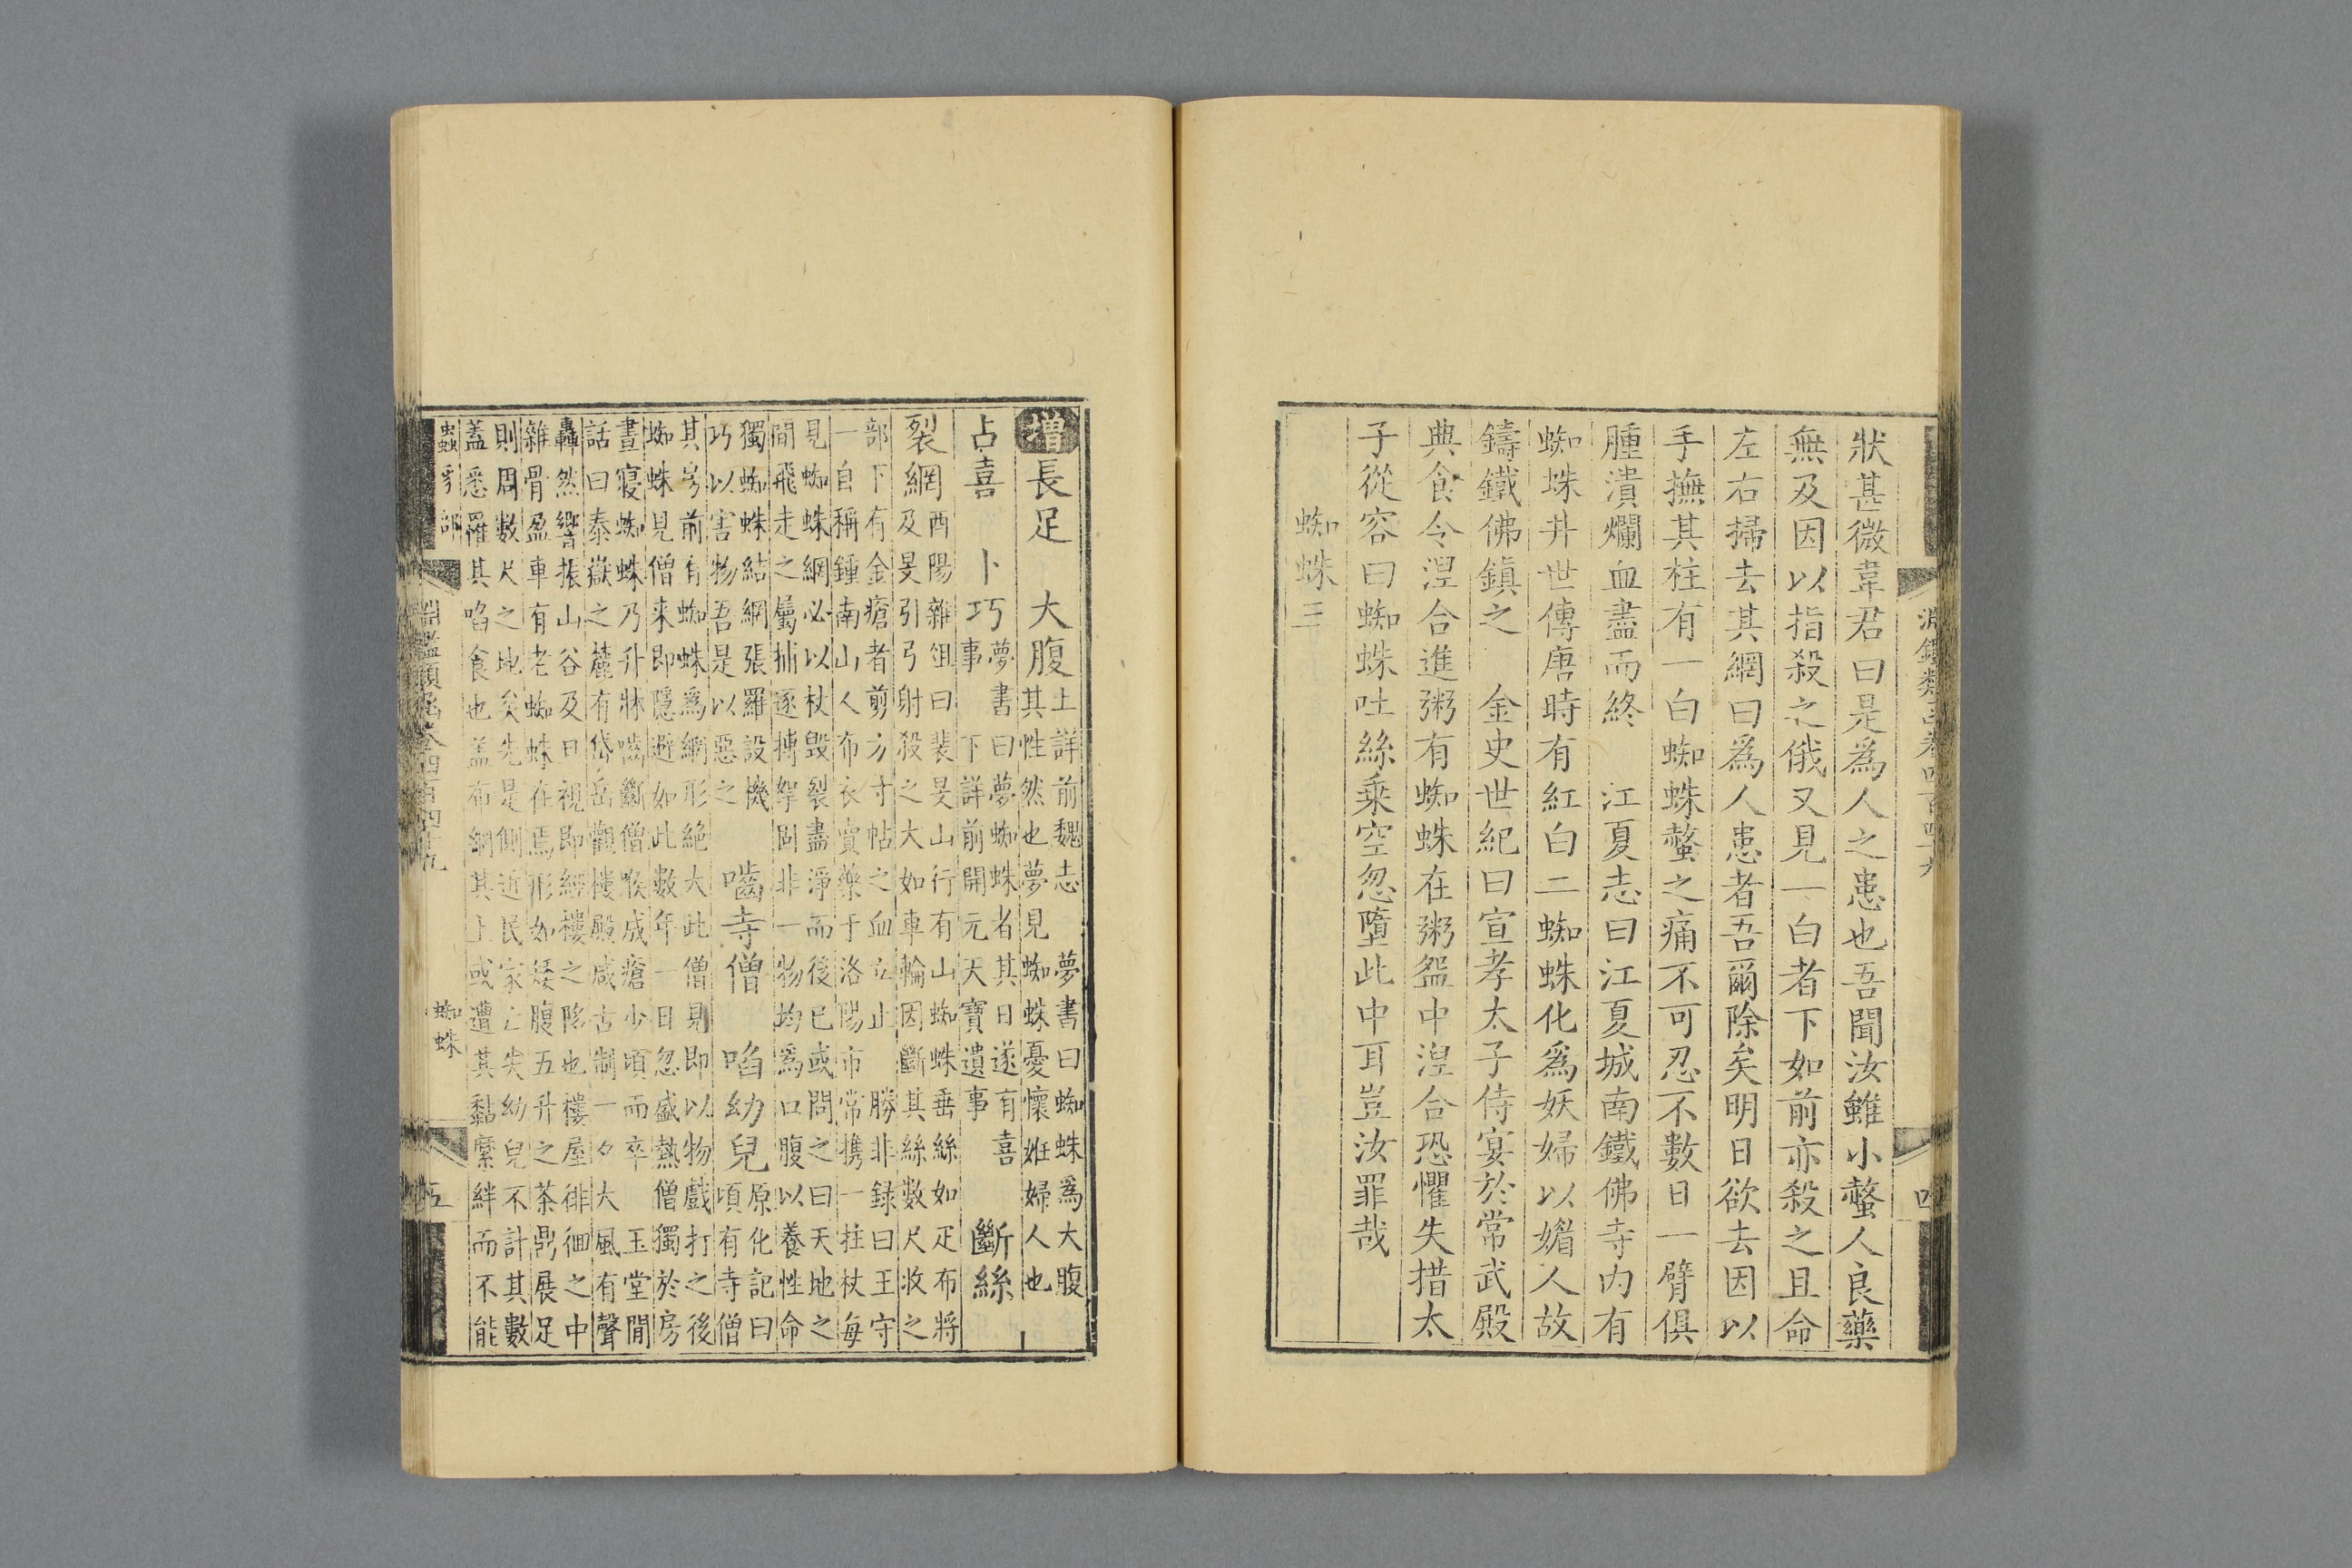 淵鑑類函卷四百四十九 四
狀甚微韋君曰是爲人之患也吾聞汝雖小螫人良藥
無及因以指殺之俄又見一白者下如前亦殺之且命
左右掃去其網曰爲人患者吾爾除矣明日欲去因以
手撫其柱有一白蜘蛛螫之痛不可忍不數日一臂俱
腫潰爛血盡而終 江夏志曰江夏城南鐵佛寺内有
蜘蛛井世傳唐時有紅白二蜘蛛化爲妖婦以媚人故
鑄鐵佛鎮之 金史世紀曰宣孝太子侍宴於常武殿
典食令涅合進粥有蜘蛛在粥盌中涅合恐懼失措太
子從容曰蜘蛛吐絲乗空忽墮此中耳豈汝罪哉
蜘蛛三
增長足 大腹
上詳前魏志 夢書曰蜘蛛爲大腹
其性然也夢見蜘蛛憂懷姙婦人也
占喜 卜巧
夢書曰夢蜘蛛者其日遂有喜
事 下詳前開元天寶遺事
斷絲
裂網
酉陽雜俎曰裴旻山行有山蜘蛛垂絲如疋布將
及旻引弓射殺之大如車輪因斷其絲數尺收之
部下有金瘡者剪方寸帖之血立止 勝非録曰王守
一自稱鍾南山人布衣賣藥于洛陽市常携一拄杖每
見蜘蛛網必以杖毁裂盡淨而後已或問之曰天地之
間飛走之屬捕逐搏拏固非一物均爲口腹以養性命
獨蜘蛛結網張羅設機
巧以害物吾是以惡之
嚙寺僧 啗幼兒
原化記曰
頃有寺僧
其㝑前有蜘蛛爲網形絶大此僧見即以物戲打之後
蜘蛛見僧來即隱避如此數年一日忽盛熱僧獨於房
晝寢蜘蛛乃升牀嚙斷僧喉成瘡少頃而卒 玉堂閒
話曰泰嶽之麓有岱岳觀樓殿咸古制一夕大風有聲
轟然響振山谷及旦視即經樓之陊也樓屋徘徊之中
雜骨盈車有老蜘蛛在焉形如矮腹五升之茶鼎展足
則周數尺之地矣先是側近民家亡失幼兒不計其數
蓋悉羅其啗食也蓋布網其上或遭其黏縻絆而不能
蟲豸部 淵鑑類函卷四百四十九 蜘蛛 五